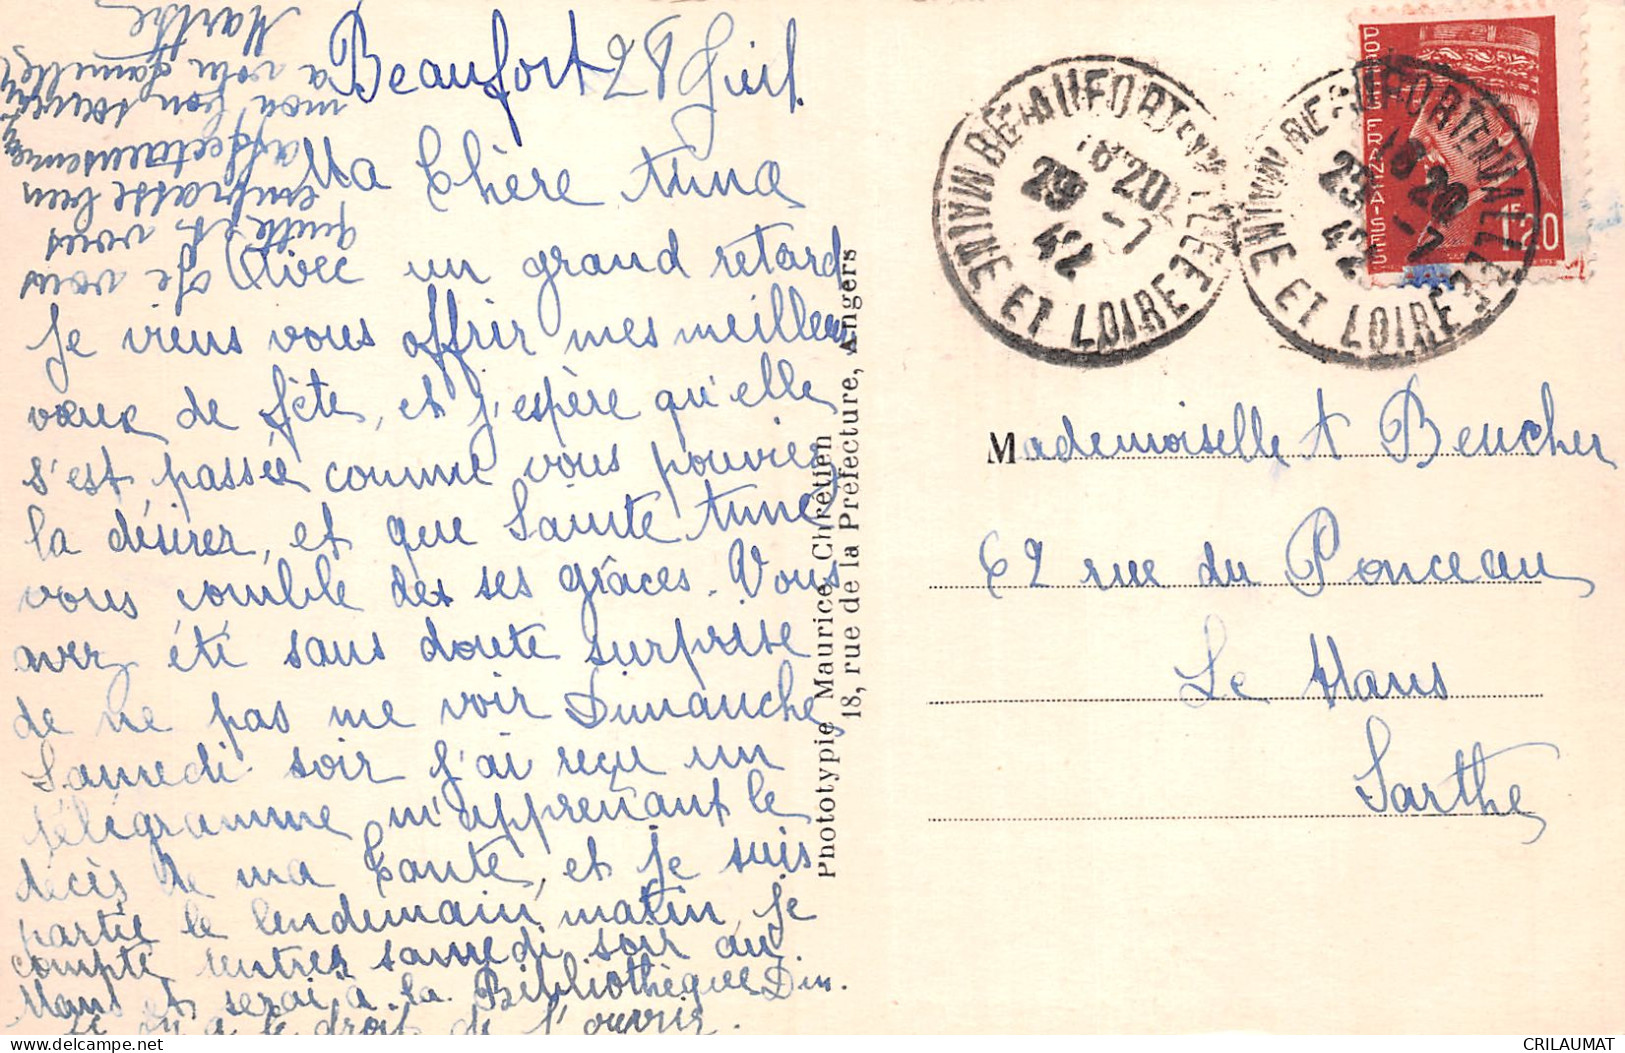 Beaufort 28 Juil.
Ma Chère Anna
Avec un grand retard
je viens vous offrir mes meilleurs
vœux de fête, et j'espère qu'elle
s'est passée comme vous pouviez
la désirez, et que Sainte Anne
vous comble des ses grâces. Vous
avez été sans doute surprise
de ne pas me voir Dimanche
Samedi soir j'ai reçu un
télégramme m'apprenant le
décès de ma tante, et je suis
partie le lendemain matin, je
compte rentrer samedi soir au
Mans et serai à la Bibliothèque Dim.
si j'y a le droit de l'ouvrir.
Je vous
quitte et vous
embrasse bien
affectueusement
mon bon souvenir
a votre famille
Marthe
Phototypie Maurice Chrétien
18, rue de la Préfecture, Angers
BEAUFORT-EN-VALLEE
18 20
29 -7
42
MAINE ET LOIRE
BEAUFORT-EN-VALLEE
18 20
29 -7
42
MAINE ET LOIRE
POSTES FRANÇAISES
1F20
Mademoiselle A Beucher
62 rue du Ponceau
Le Mans
Sarthe
CRILAUMAT